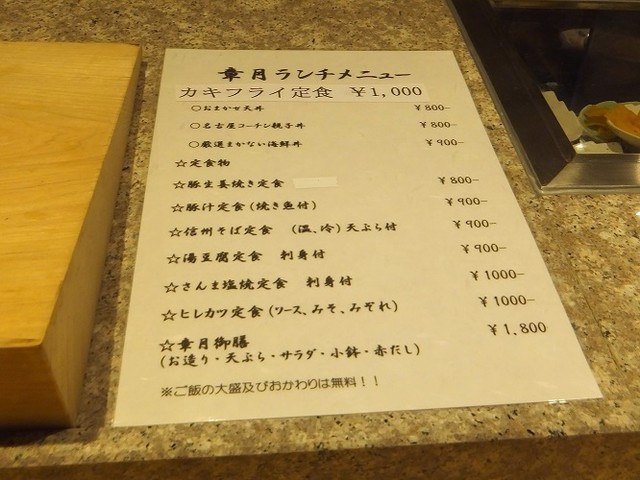 章月ランチメニュー
カキフライ定食 ￥1,000
○おまかせ天丼 ￥800-
○名古屋コーチン親子丼 ￥800-
○厳選まかない海鮮丼 ￥900-
☆定食物
☆豚生姜焼き定食 ￥800-
☆豚汁定食(焼き魚付) ￥900-
☆信州そば定食 (温、冷)天ぷら付 ￥900-
☆湯豆腐定食 刺身付 ￥900-
☆さんま塩焼定食 刺身付 ￥1000-
☆ヒレカツ定食(ソース、みそ、みぞれ) ￥1000-
☆章月御膳 ￥1,800
(お造り・天ぷら・サラダ・小鉢・赤だし)
※ご飯の大盛及びおかわりは無料！！